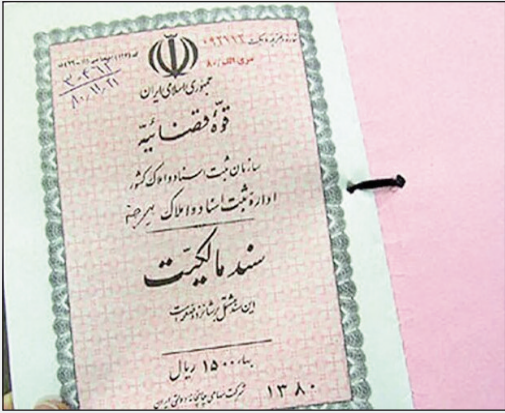 شماره دفترچه مالکیت ۰۹۲۷۱۲
سری الف/۸۰
۳۰۴۶۱۲
۸۰،۱۱،۲۱
جمهوری اسلامی ایران
قوّه قضائیّه
سازمان ثبت اسناد و املاک کشور
اداره ثبت اسناد و املاک
سند مالکیّت
این سند مشتمل بر شانزده صفحه است
بهاء ۱۵۰۰ ریال
۱۳۸۰
شرکت سهامی چاپخانه دولتی ایران